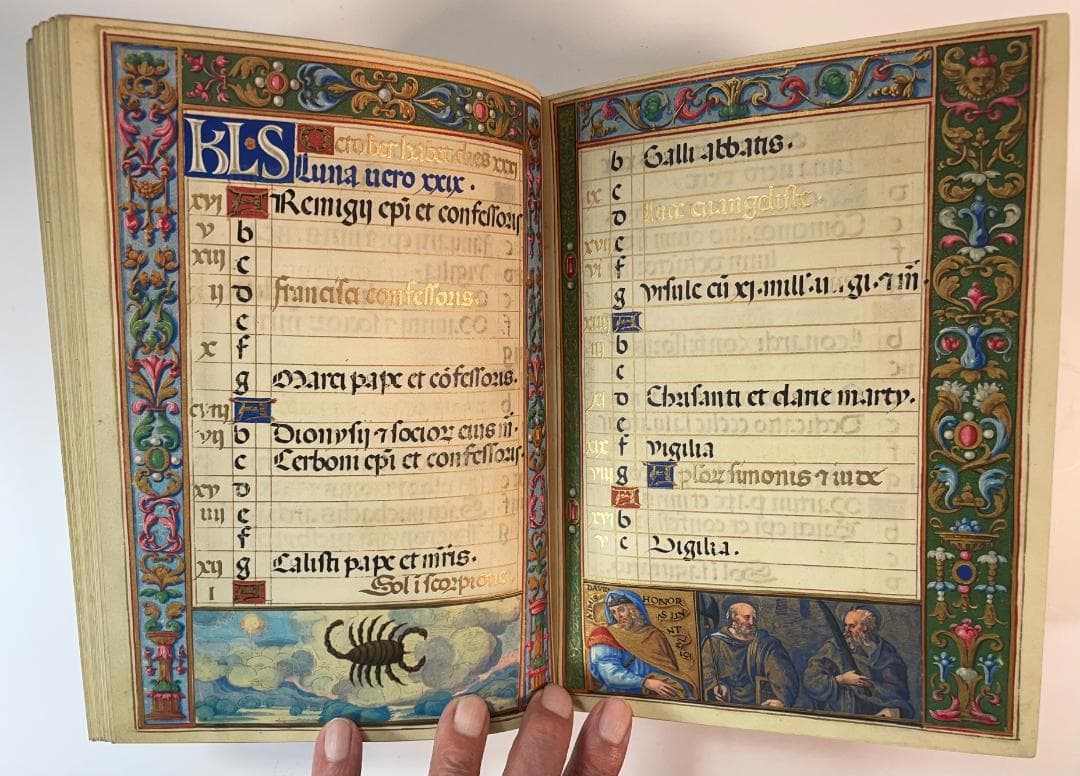 KLS October habet dies xxxi
Luna vero xxix.
xvi A Remigii epi et confessoris
v b
xiii c
ii D francisci confessoris.
e
x f
g Marci pape et cōfessoris.
xviii A
vii b Dionysii ⁊ socioꝝ eius m̄.
c Cerboni epi et confessoris
xv D
iiii e
f
xii g Calisti pape et mr̄is.
i A Sol i scorpione
b Galli abbatis.
ix c
D Luce euangeliste.
xvii e
vi f
g Vrsule cū xi. mill. u gi. ⁊ m̄.
xiiii A
iii b
c
xi D Chrisanti et darie marty.
e
xix f vigilia
viii g Aploꝝ simonis ⁊ iude
A
xvi b
v c Vigilia.
DAVID
NIMIS HONOR
NT